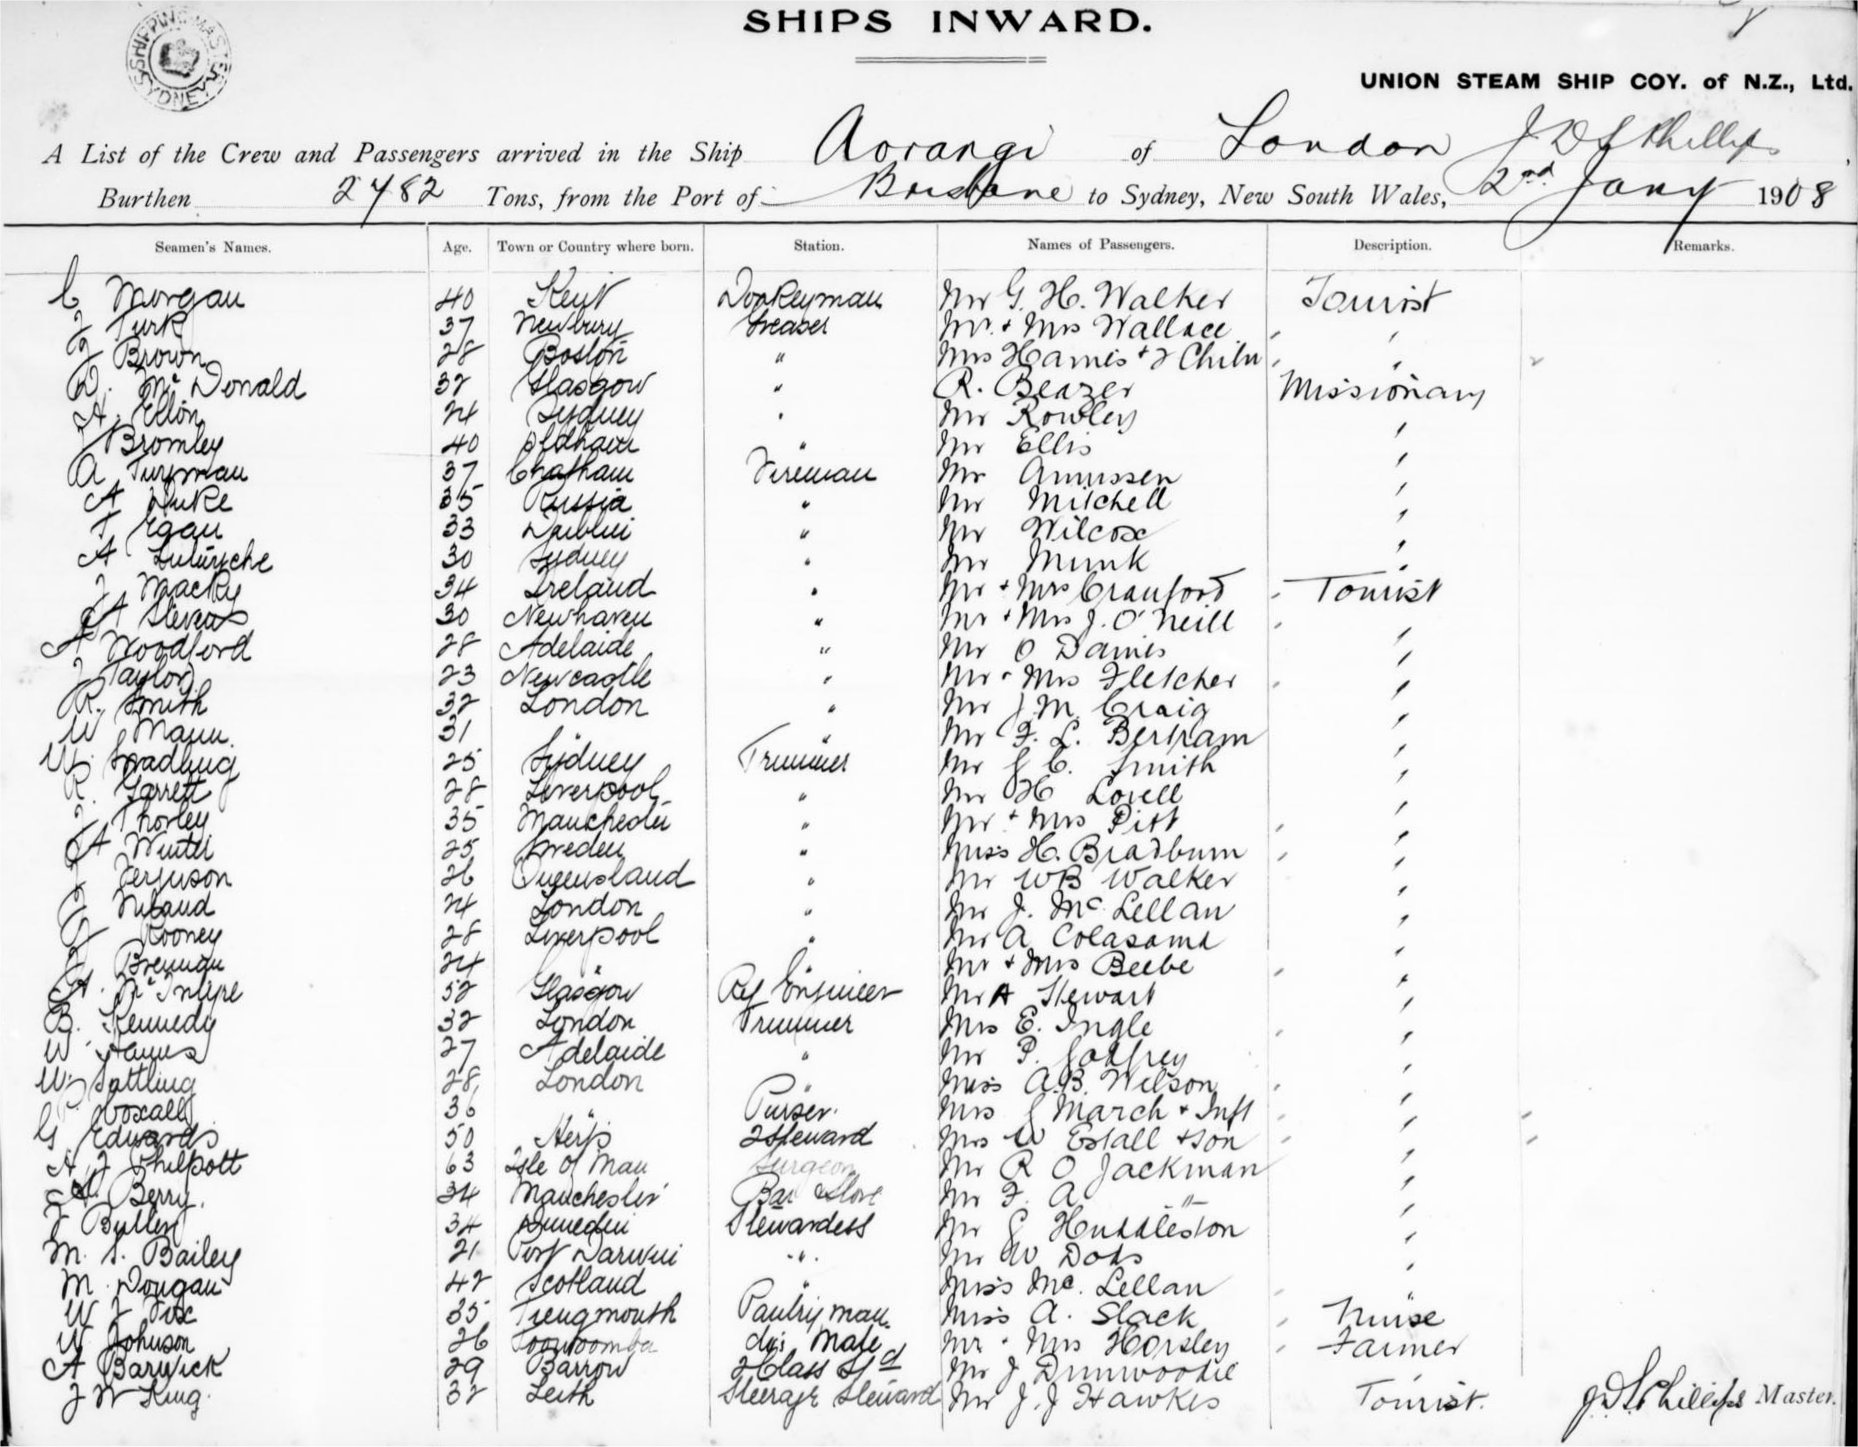 SHIPPING MASTER SYDNEY
SHIPS INWARD.
UNION STEAM SHIP COY. of N.Z., Ltd.
A List of the Crew and Passengers arrived in the Ship Aorangi of London J D S Phillips
Burthen 2782 Tons, from the Port of Brisbane to Sydney, New South Wales, 2nd Jany 1908
Seamen's Names. Age. Town or Country where born. Station. Names of Passengers. Description. Remarks.
C Morgan 40 Kent Donkeyman Mr G. H. Walker Tourist
J Turk 37 Newbury Greaser Mr. + Mrs Wallace "
J Brown 28 Boston " Mrs Harris + 2 Chiln "
D. McDonald 32 Glasgow " R. Beazer Missionary
A. 24 Sydney " Mr Rowley "
J Bromley 40 Oldham " Mr Ellis "
A 37 Chatham Fireman Mr Amussen "
A Duke 35 Russia " Mr Mitchell "
T Egan 33 Dublin " Mr Wilcox "
A 30 Sydney " Mr Munk "
J Macky 34 Ireland " Mr + Mrs Crauford Tourist
A Stevens 30 Newhaven " Mr + Mrs J. O'Neill "
A Woodford 28 Adelaide " Mr O Dames "
J Taylor 23 Newcastle " Mr + Mrs Fletcher "
R. Smith 32 London " Mr J. M. Craig "
W Mann. 31 " " Mr F. L. Bertram "
W. Spradling 25 Sydney Trimmer Mr G C. Smith "
R. Garrett 28 Liverpool " Mr H Lovell "
J Thorley 35 Manchester " Mr + Mrs Pitt "
A Winter 25 Sweden " Miss H. Bradburn "
J Ferguson 26 Queensland " Mr W B Walker "
J Niland 24 London " Mr J. McLellan "
J Rooney 28 Liverpool " Mr A Colasama "
J Brennan 24 " " Mr + Mrs Beebe "
A. McIntyre 52 Glasgow Rfg Engineer Mr A Stewart "
B. Kennedy 32 London Trimmer Mrs E. Ingle "
W 27 Adelaide " Mr P. Godfrey "
W. Suttling 28 London " Miss A. B. Wilson "
Coxall 36 " Purser. Mrs G March + Inft "
G Edwards 50 Herts 2 Steward Mrs W Estall + son "
A. J Philpott 63 Isle of Man Surgeon Mr R O Jackman "
A. Berry. 34 Manchester Bar Store Mr F. A. " "
J Buller 34 Dunedin Stewardess Mr G Huddleston "
M. S. Bailey 21 Port Darwin " Mr W Dods "
M. Dougan 42 Scotland " Miss McLellan "
W J Fox 35 Tiengmouth Pantryman Miss A. Slack Nurse
W. Johnson 26 Toowoomba do's Mate Mr + Mrs Horsley Farmer
A Barwick 29 Barrow 2 Class Std Mr J Dunwoodie "
J W King. 32 Leith Steerage Steward Mr J. J Hawkes Tourist. J. D. S. Phillips Master.